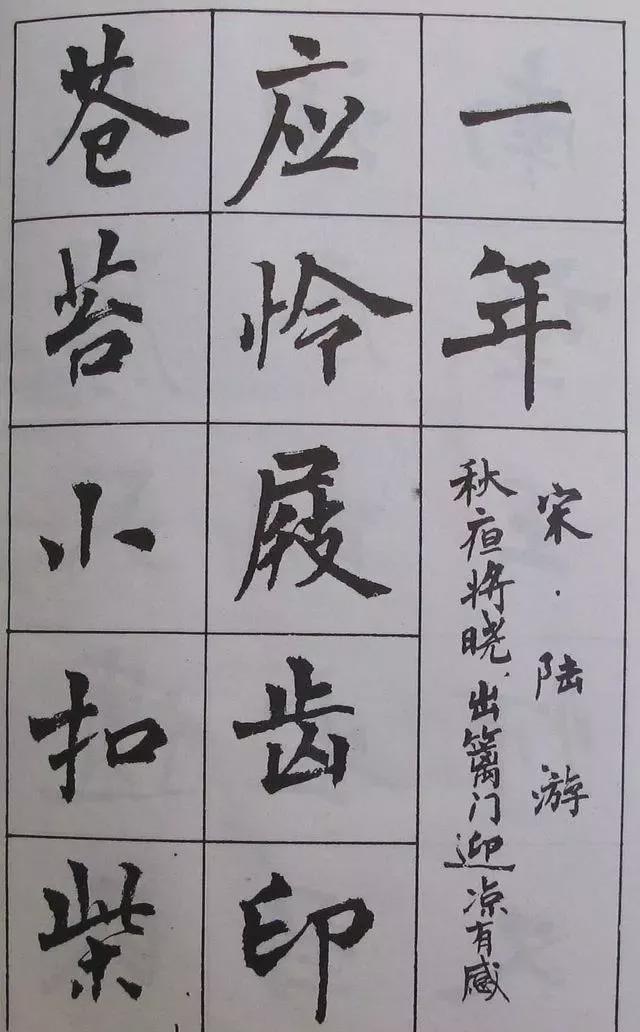 一年
宋·陆游
秋夜将晓,出篱门迎凉有感
应怜屐齿印
苍苔小扣柴